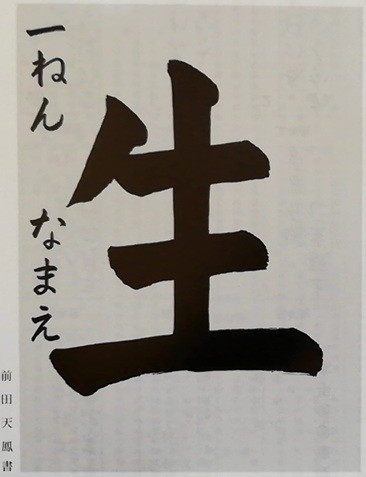 生
一ねん　なまえ
前田天鳳書